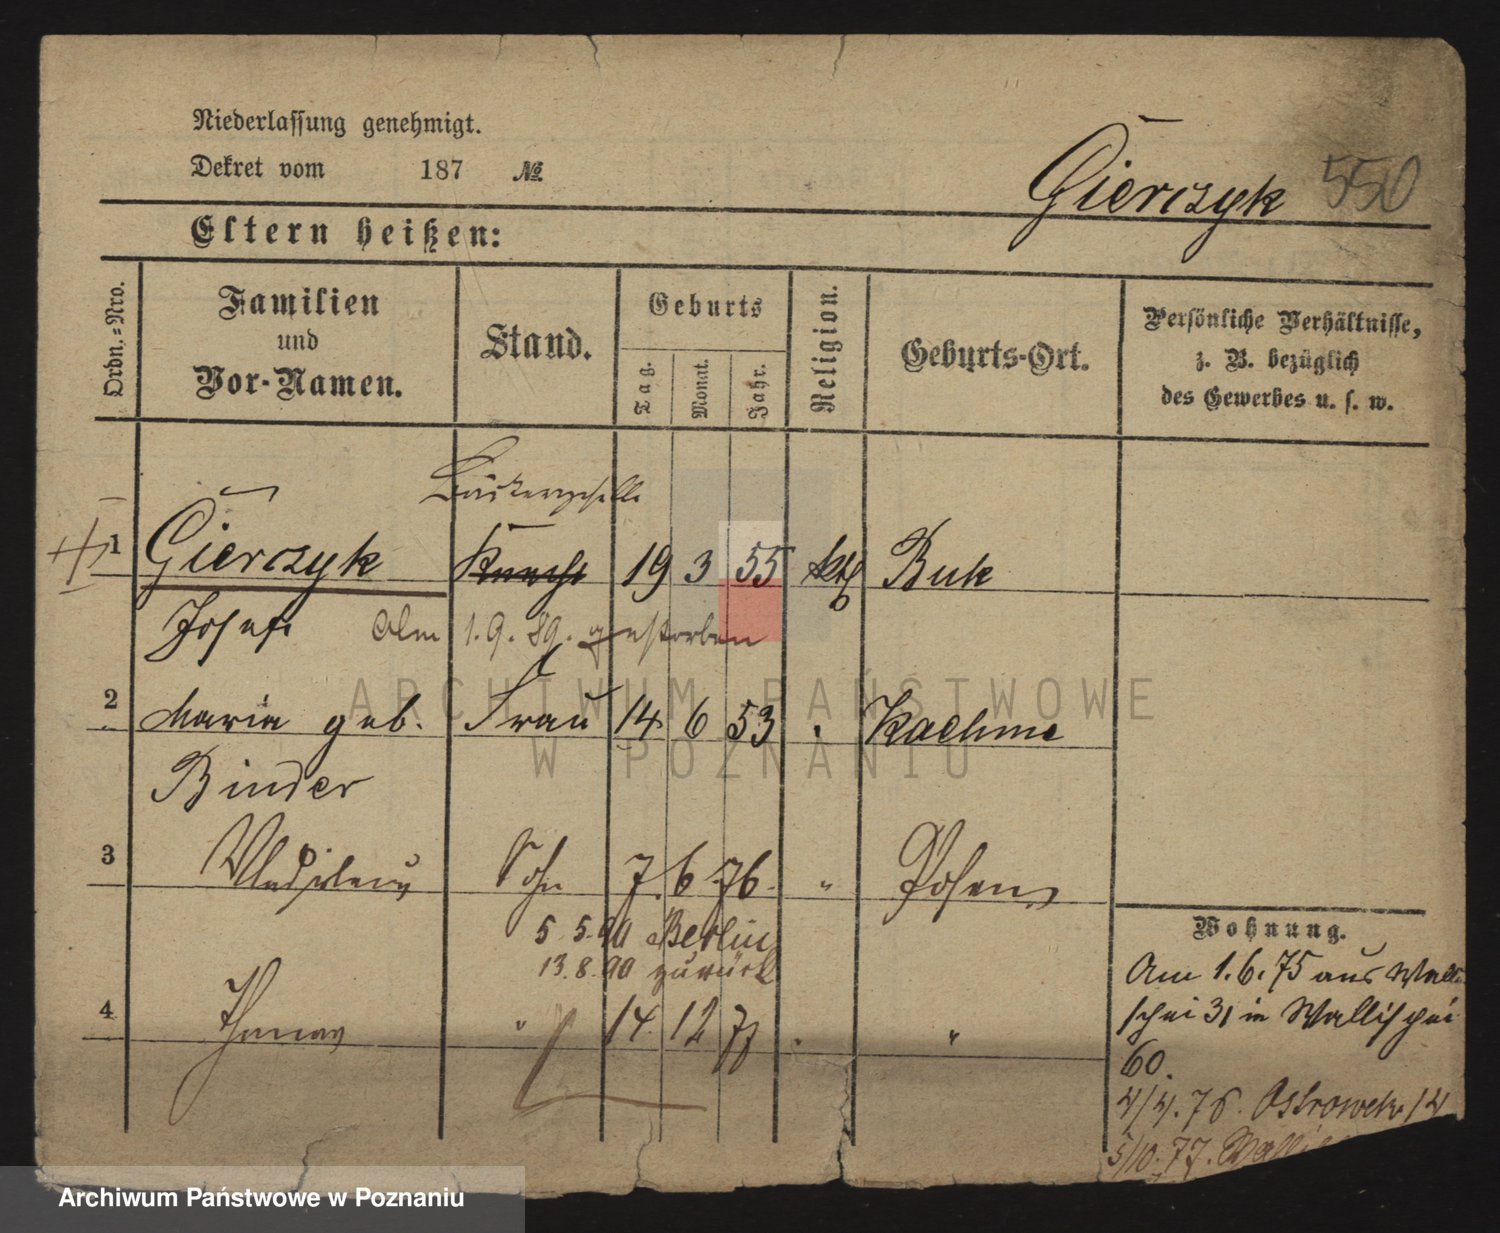 Niederlassung genehmigt.
Dekret vom 187 №
Gierczyk 550
Eltern heißen:
Ordn.=Nro.
Familien und Vor-Namen.
Stand.
Geburts
Tag.
Monat.
Jahr.
Religion.
Geburts-Ort.
Persönliche Verhältnisse, z. B. bezüglich des Gewerbes u. s. w.
Bäckergeselle
1 Gierczyk Knecht 19 3 55 kth Buk
Josef. 1. 9. 89. gestorben
2 Maria geb. Frau 14 6 53 " Kaehme
Binder
3 Sohn 7. 6. 76. " Posen
5. 5. 90 Berlin
13. 8. 90 zurück
4 Thomas " 14. 12 77 . "
Wohnung.
Am 1. 6. 75 aus Walli
schei 31 in Wallischei
60.
4/4. 76. Ostrowek 14
5/10. 77. Walli
ARCHIWUM PAŃSTWOWE
W POZNANIU
Archiwum Państwowe w Poznaniu